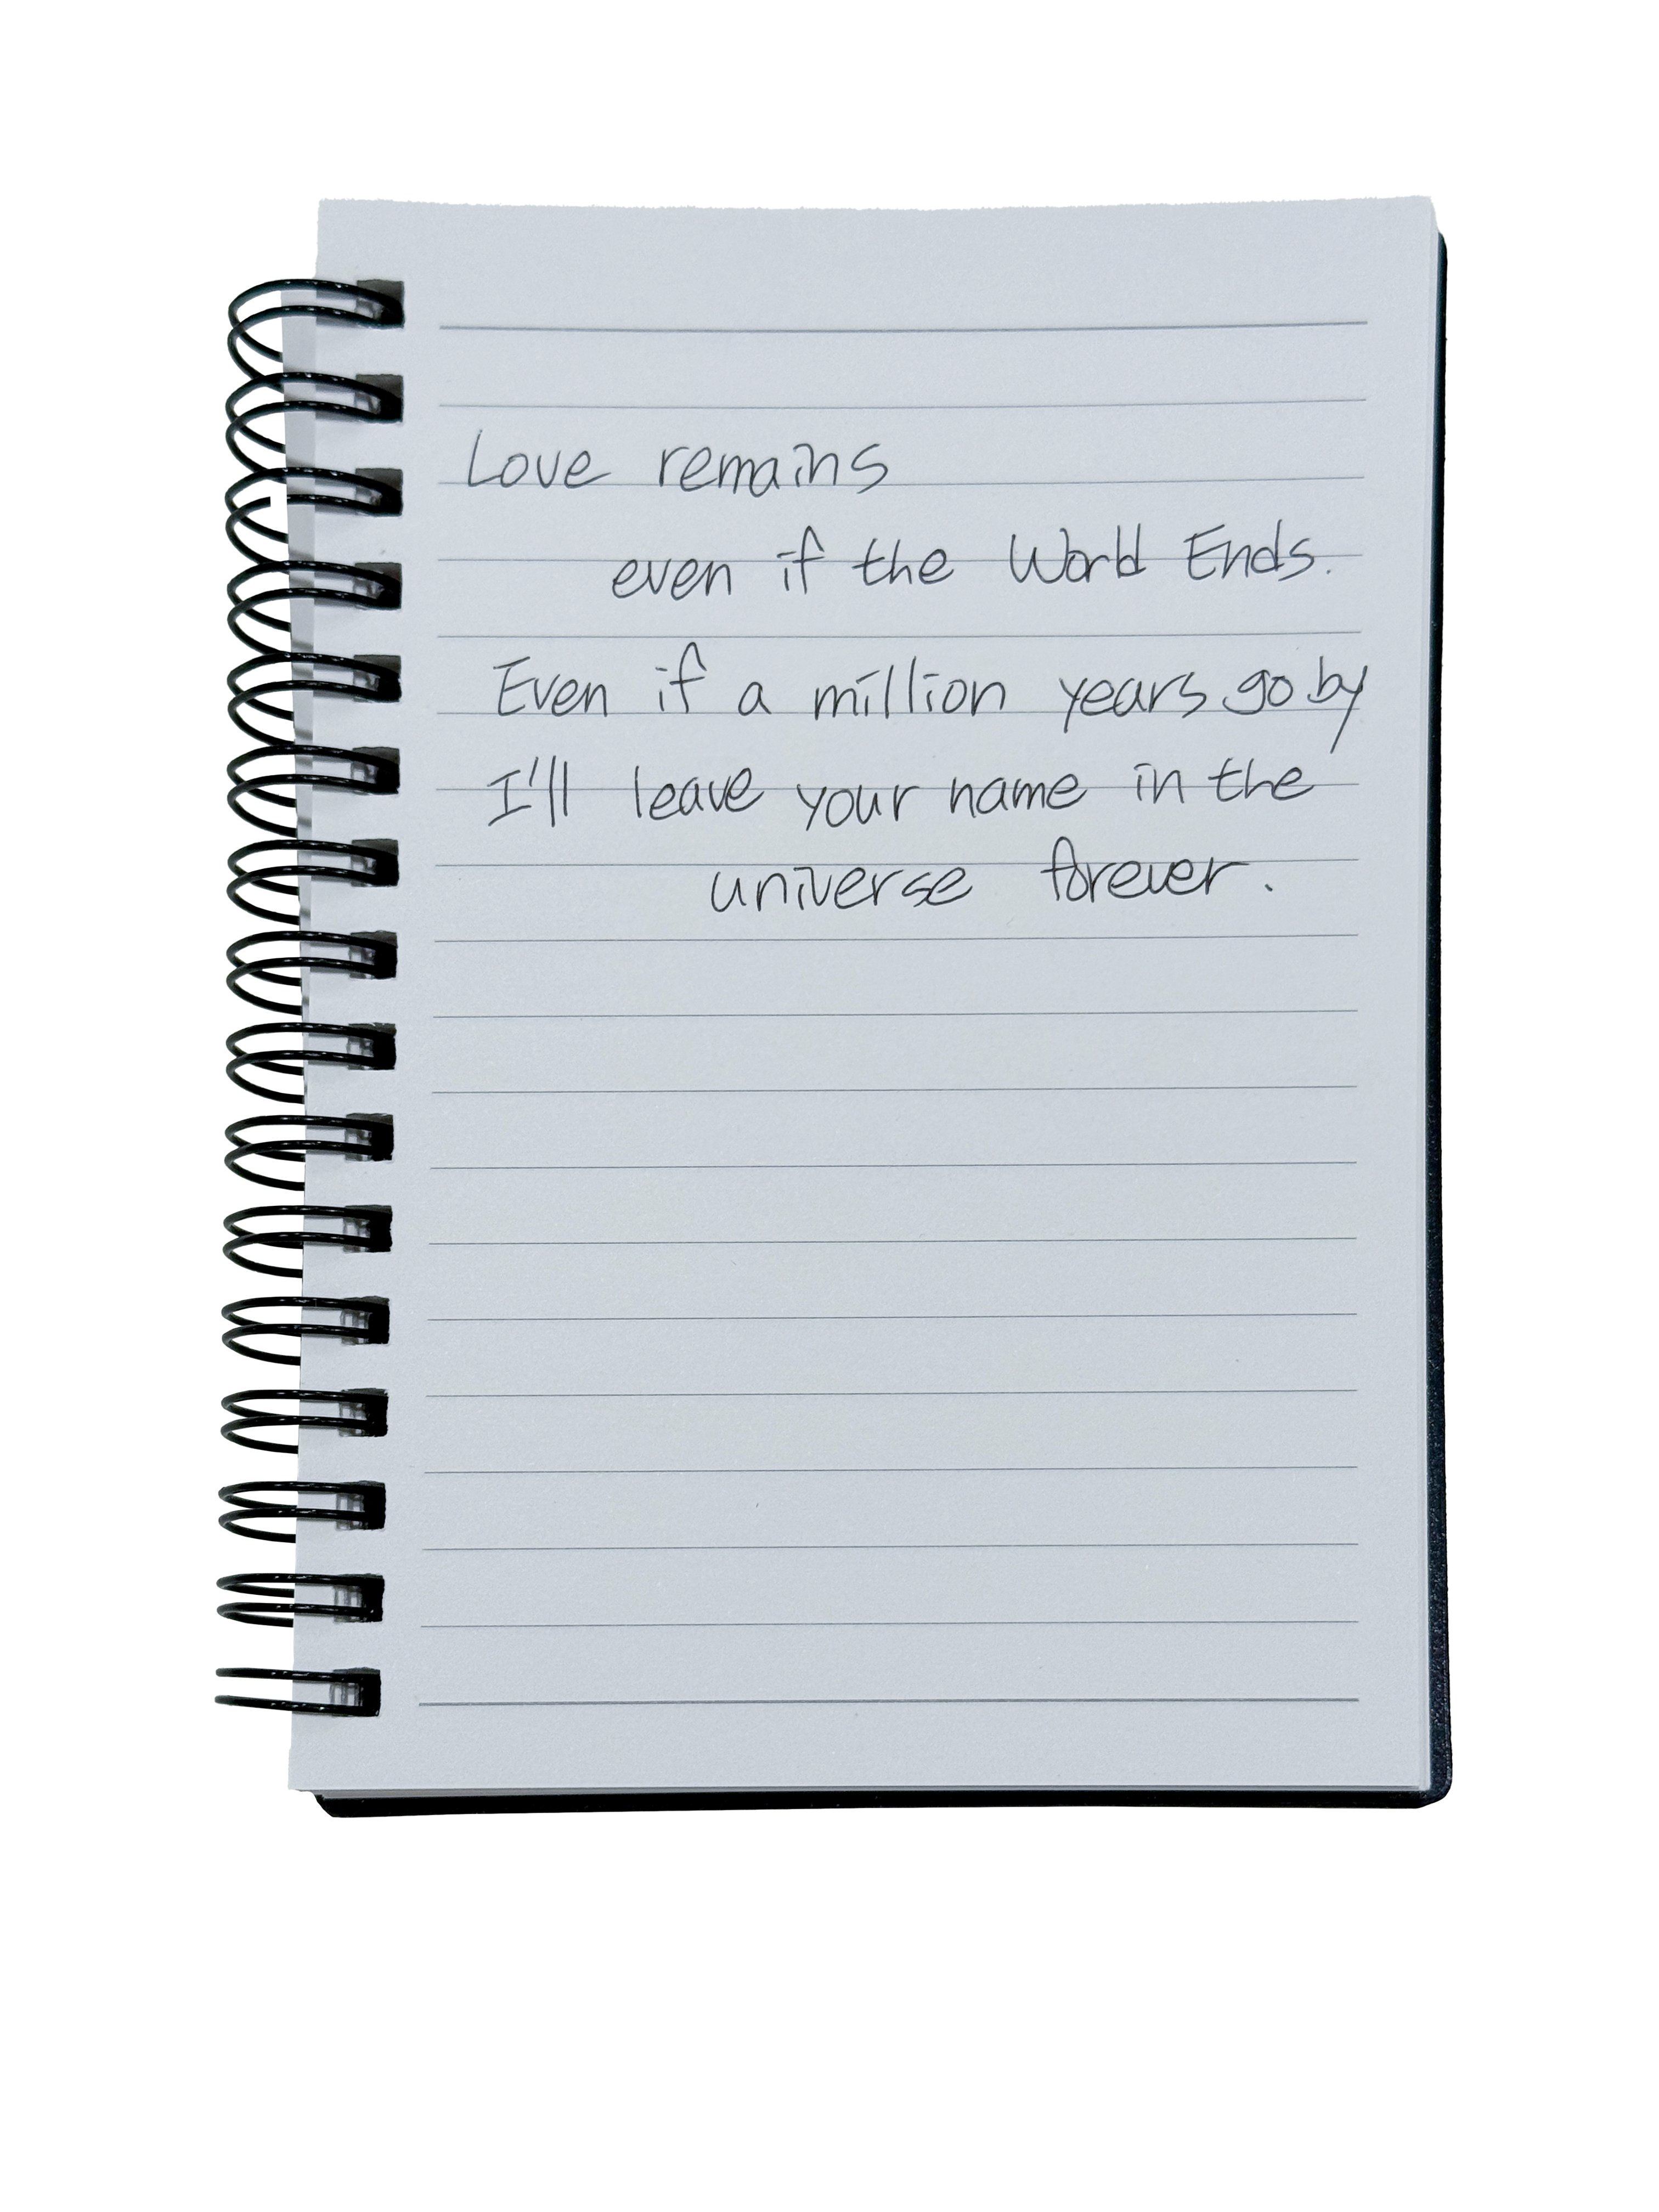 Love remains
even if the World Ends.
Even if a million years go by
I'll leave your name in the
universe forever.